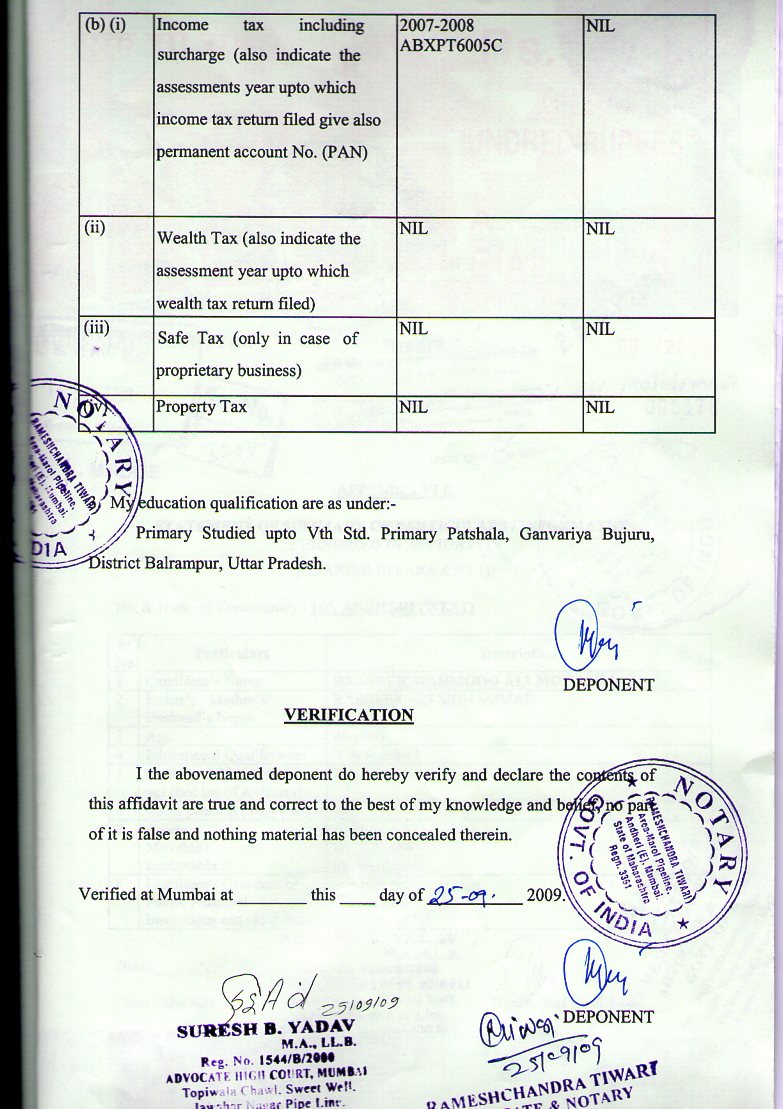 (b) (i) Income tax including 2007-2008 NIL
surcharge (also indicate the ABXPT6005C
assessments year upto which
income tax return filed give also
permanent account No. (PAN)
(ii) Wealth Tax (also indicate the NIL NIL
assessment year upto which
wealth tax return filed)
(iii) Safe Tax (only in case of NIL NIL
proprietary business)
(iv) Property Tax NIL NIL
NOTARY
RAMESHCHANDRA TIWARI
Area-Marol Pipeline,
Andheri (E), Mumbai.
Maharashtra
DIA
My education qualification are as under:-
Primary Studied upto Vth Std. Primary Patshala, Ganvariya Bujuru,
District Balrampur, Uttar Pradesh.
DEPONENT
VERIFICATION
I the abovenamed deponent do hereby verify and declare the contents of
this affidavit are true and correct to the best of my knowledge and belief, no part
of it is false and nothing material has been concealed therein.
Verified at Mumbai at ________ this ____ day of 25-09. 2009.
NOTARY
GOVT. OF INDIA
RAMESHCHANDRA TIWARI
Area-Marol Pipeline,
Andheri (E), Mumbai.
State of Maharashtra
Regn. 3351
DEPONENT
25/09/09
SURESH B. YADAV
M.A., LL.B.
Reg. No. 1544/B/2000
ADVOCATE HIGH COURT, MUMBAI
Topiwala Chawl, Sweet Well.
Jawahar Nagar Pipe Line.
25/09/09
RAMESHCHANDRA TIWARI
& NOTARY